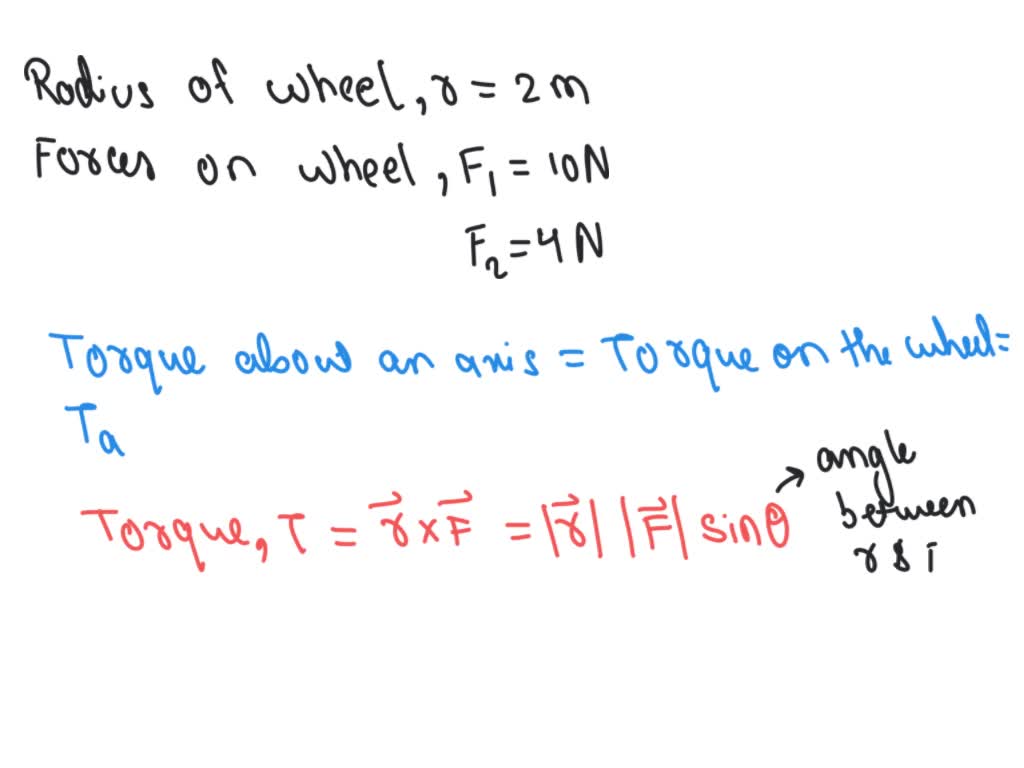 Radius of wheel, r = 2 m
Forces on wheel, F₁ = 10 N
F₂ = 4 N
Torque about an axis = Torque on the wheel =
Ta
Torque, T = r⃗ × F⃗ = |r⃗| |F⃗| sinθ → angle
between
r & F